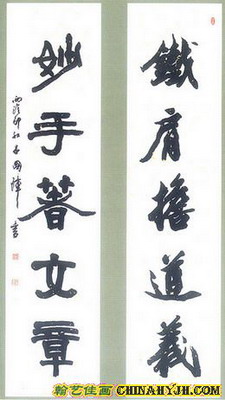 鐵肩擔道義
妙手著文章
翰艺佳画 CHINAHYJH.COM